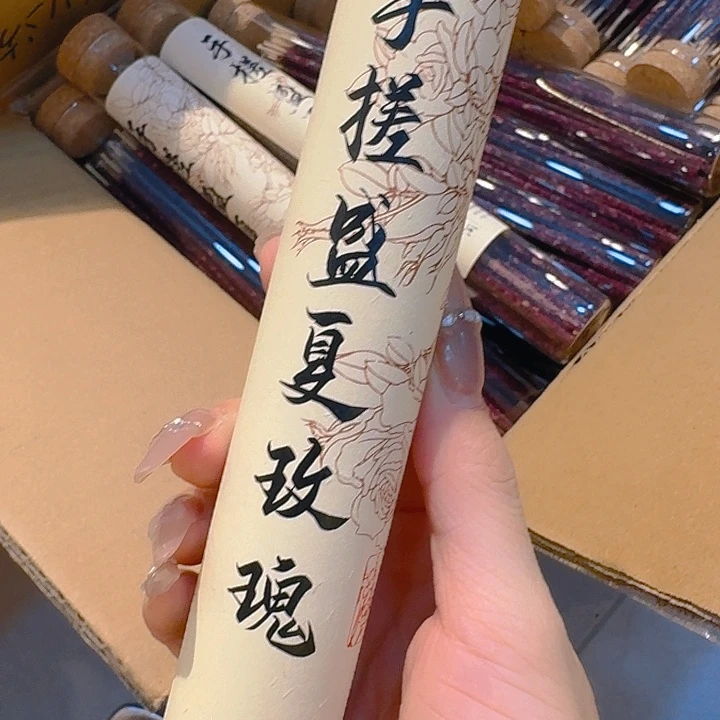 手搓盛夏玫瑰
手搓